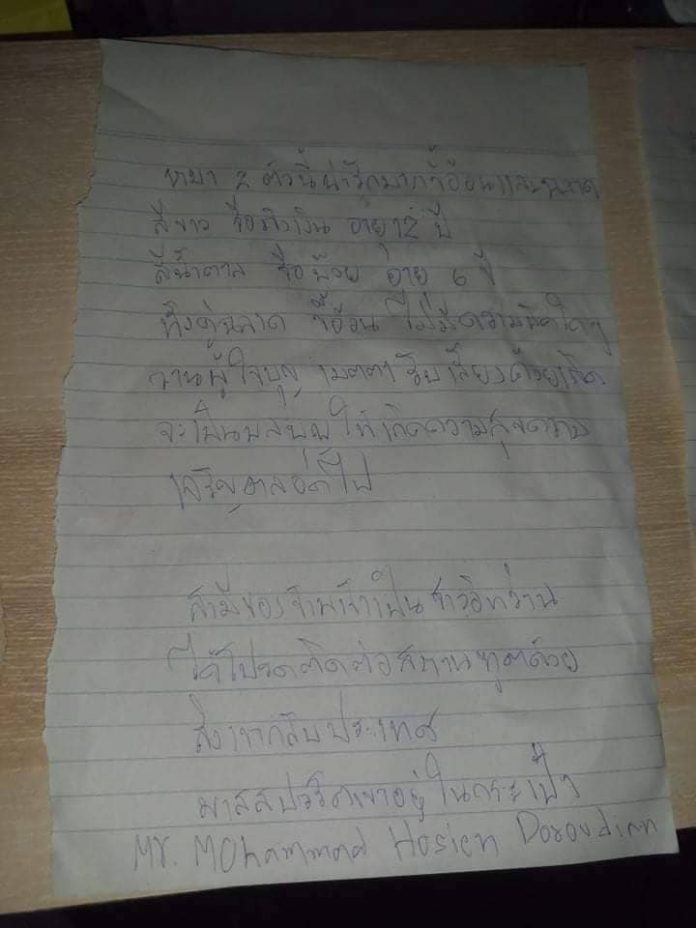 หมา 2 ตัวนี้น่ารักมากขี้อ้อนและฉลาด
สีขาว ชื่อ อายุ 12 ปี
สีน้ำตาล ชื่อ อายุ 6 ปี
ทั้งคู่ฉลาด ขี้อ้อน ไม่มีความผิดใดๆ
วานผู้ใจบุญ เมตตา รับเลี้ยงด้วยเถิด
จะเป็นผลบุญ ให้เกิดความสุขความ
เจริญตลอดไป
สามีของข้าพเจ้าเป็นชาวอิหร่าน
ได้โปรดติดต่อสถานทูตด้วย
ส่งเขากลับประเทศ
พาสสปอร์ตเขาอยู่ในกระเป๋า
Mr. Mohammad Hosien Doroudian